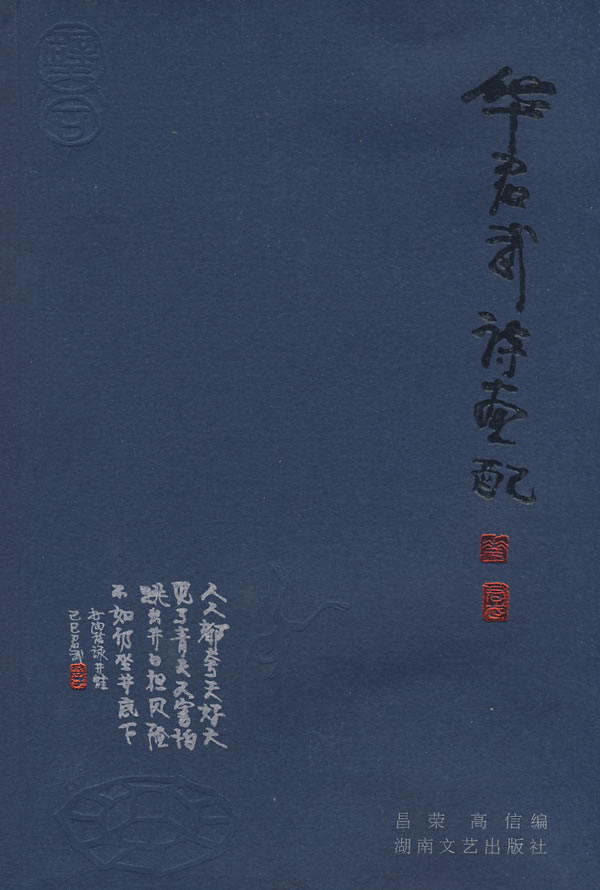 华君武诗画配
人人都夸天好大
见了青天又害怕
跳出井口担风险
不如仍坐井底下
咏井蛙
己巳君武
昌荣 高信编
湖南文艺出版社